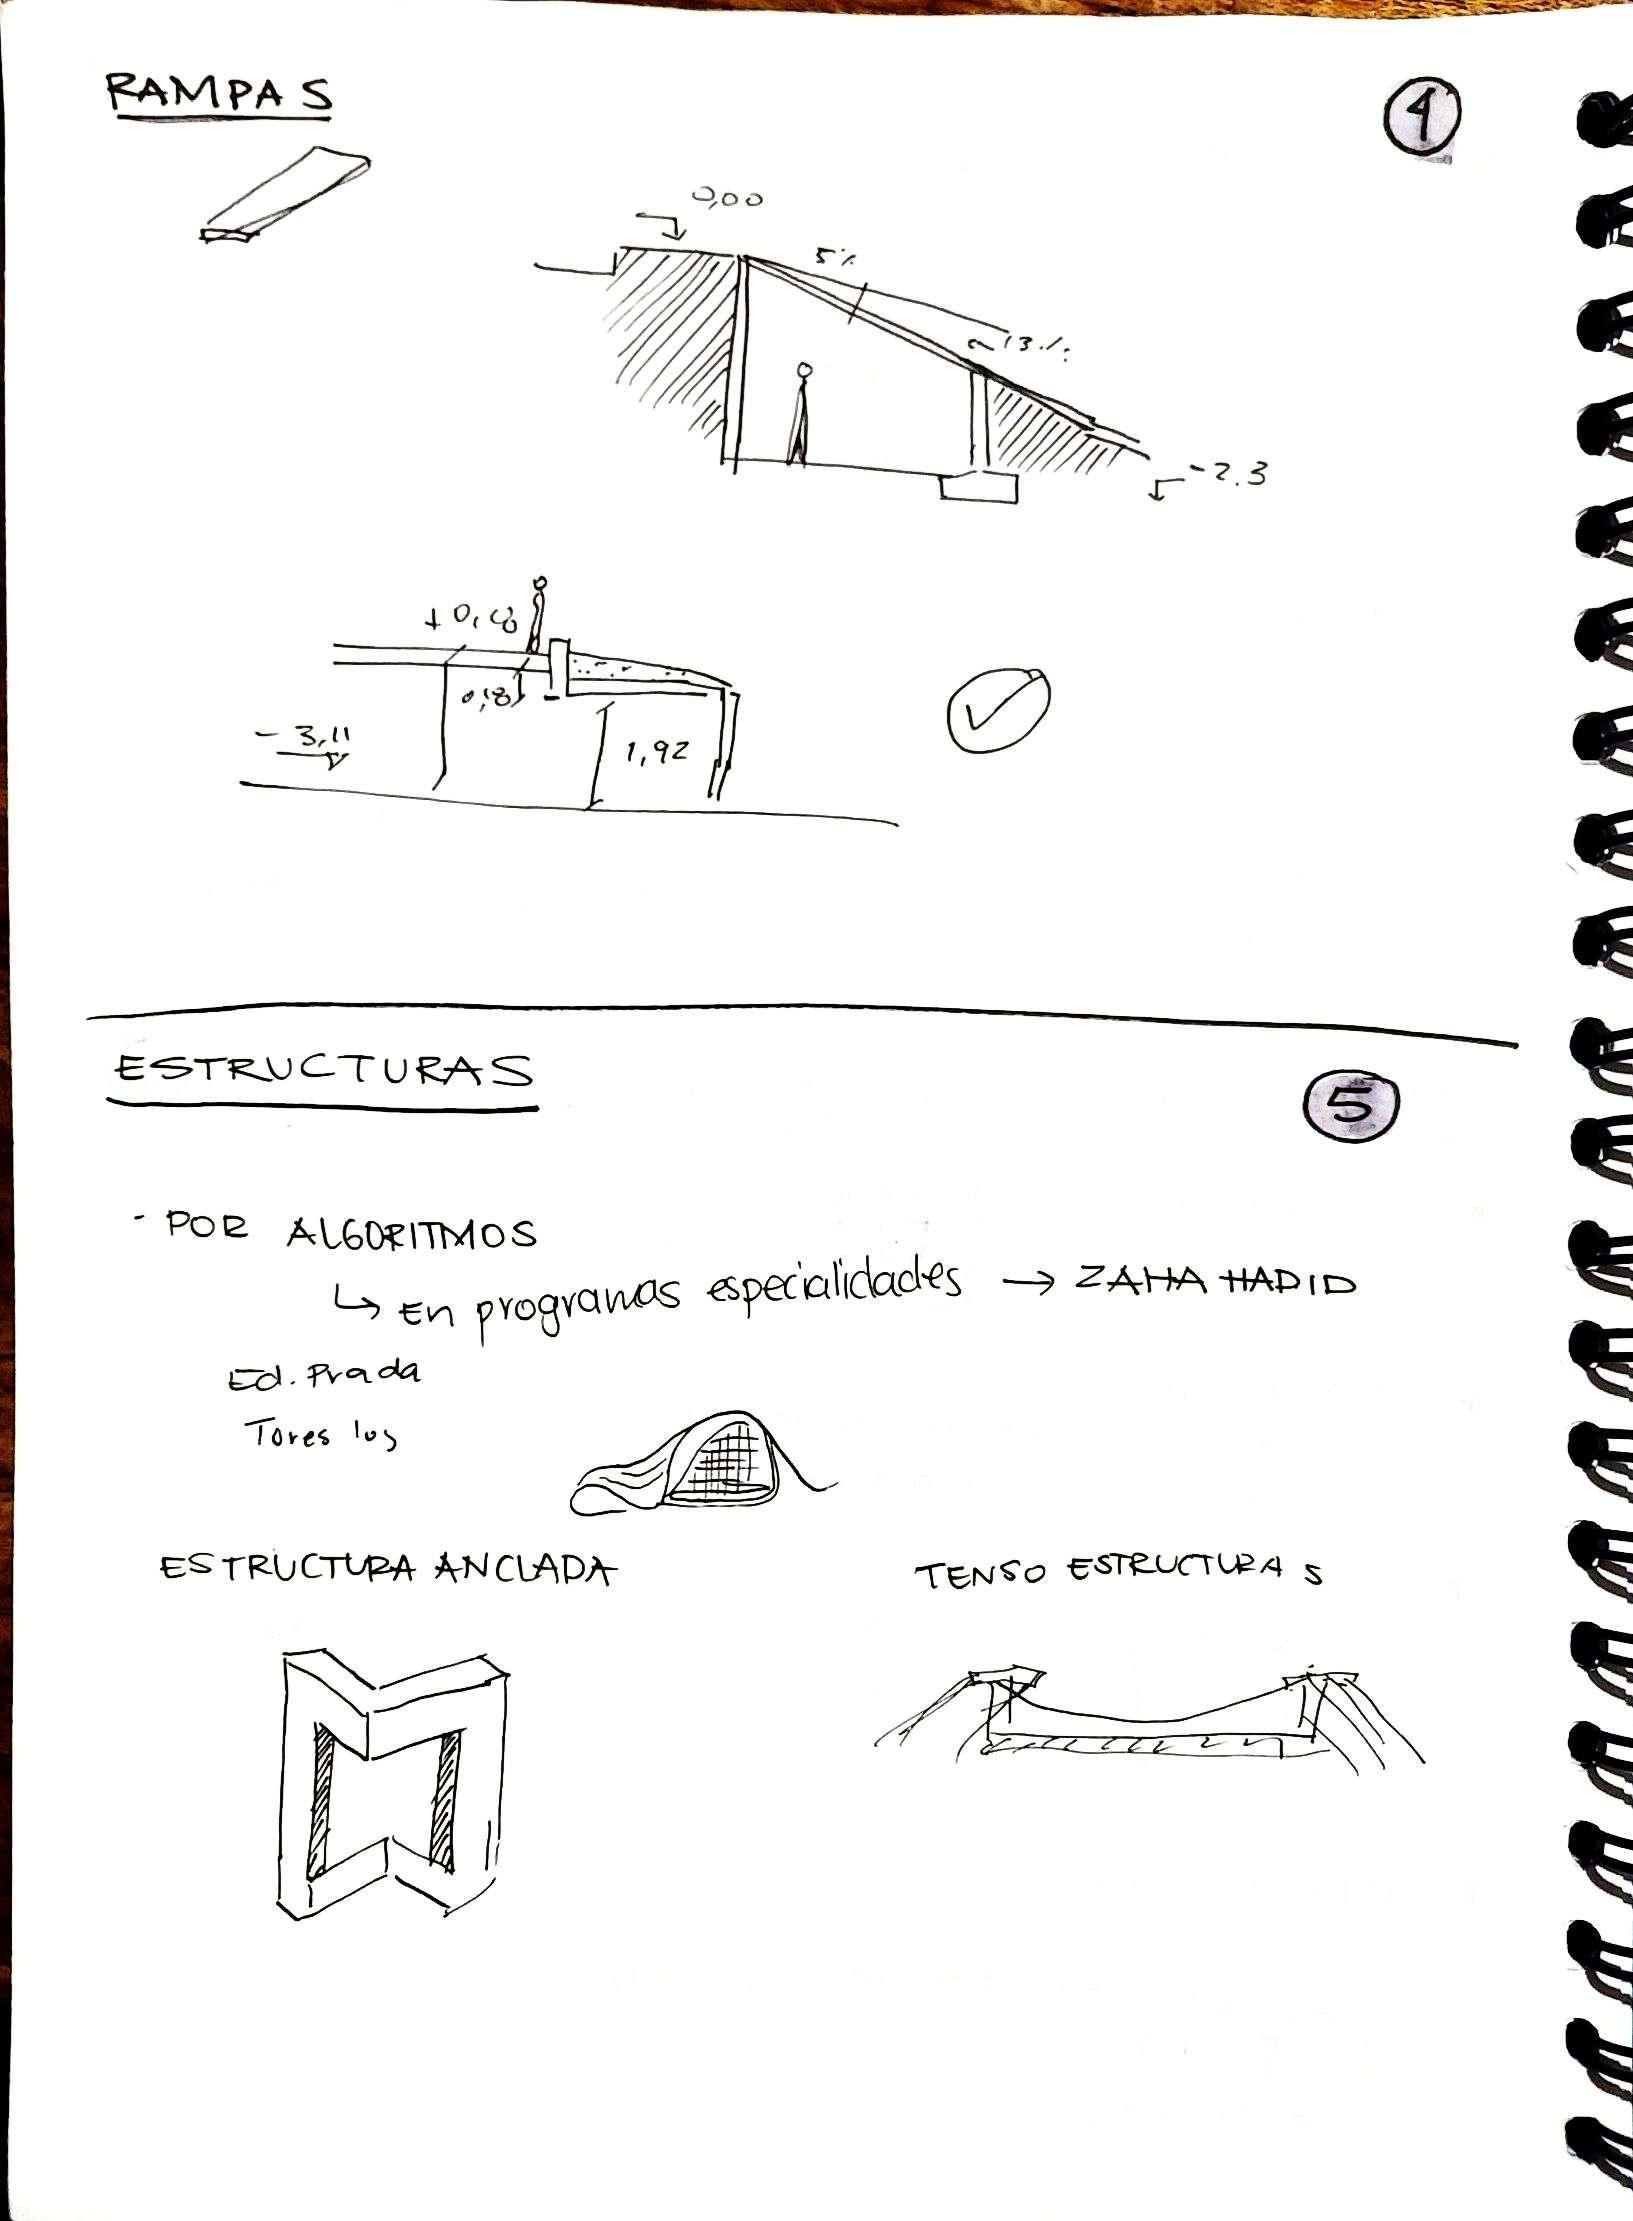 RAMPAS
4
0,00
5%
~13%
-2.3
+0,18
0,18
-3,11
1,92
ESTRUCTURAS
5
- POR ALGORITMOS
↳ En programas especialidades → ZAHA HADID
Ed. Prada
Tores los
ESTRUCTURA ANCLADA
TENSO ESTRUCTURAS